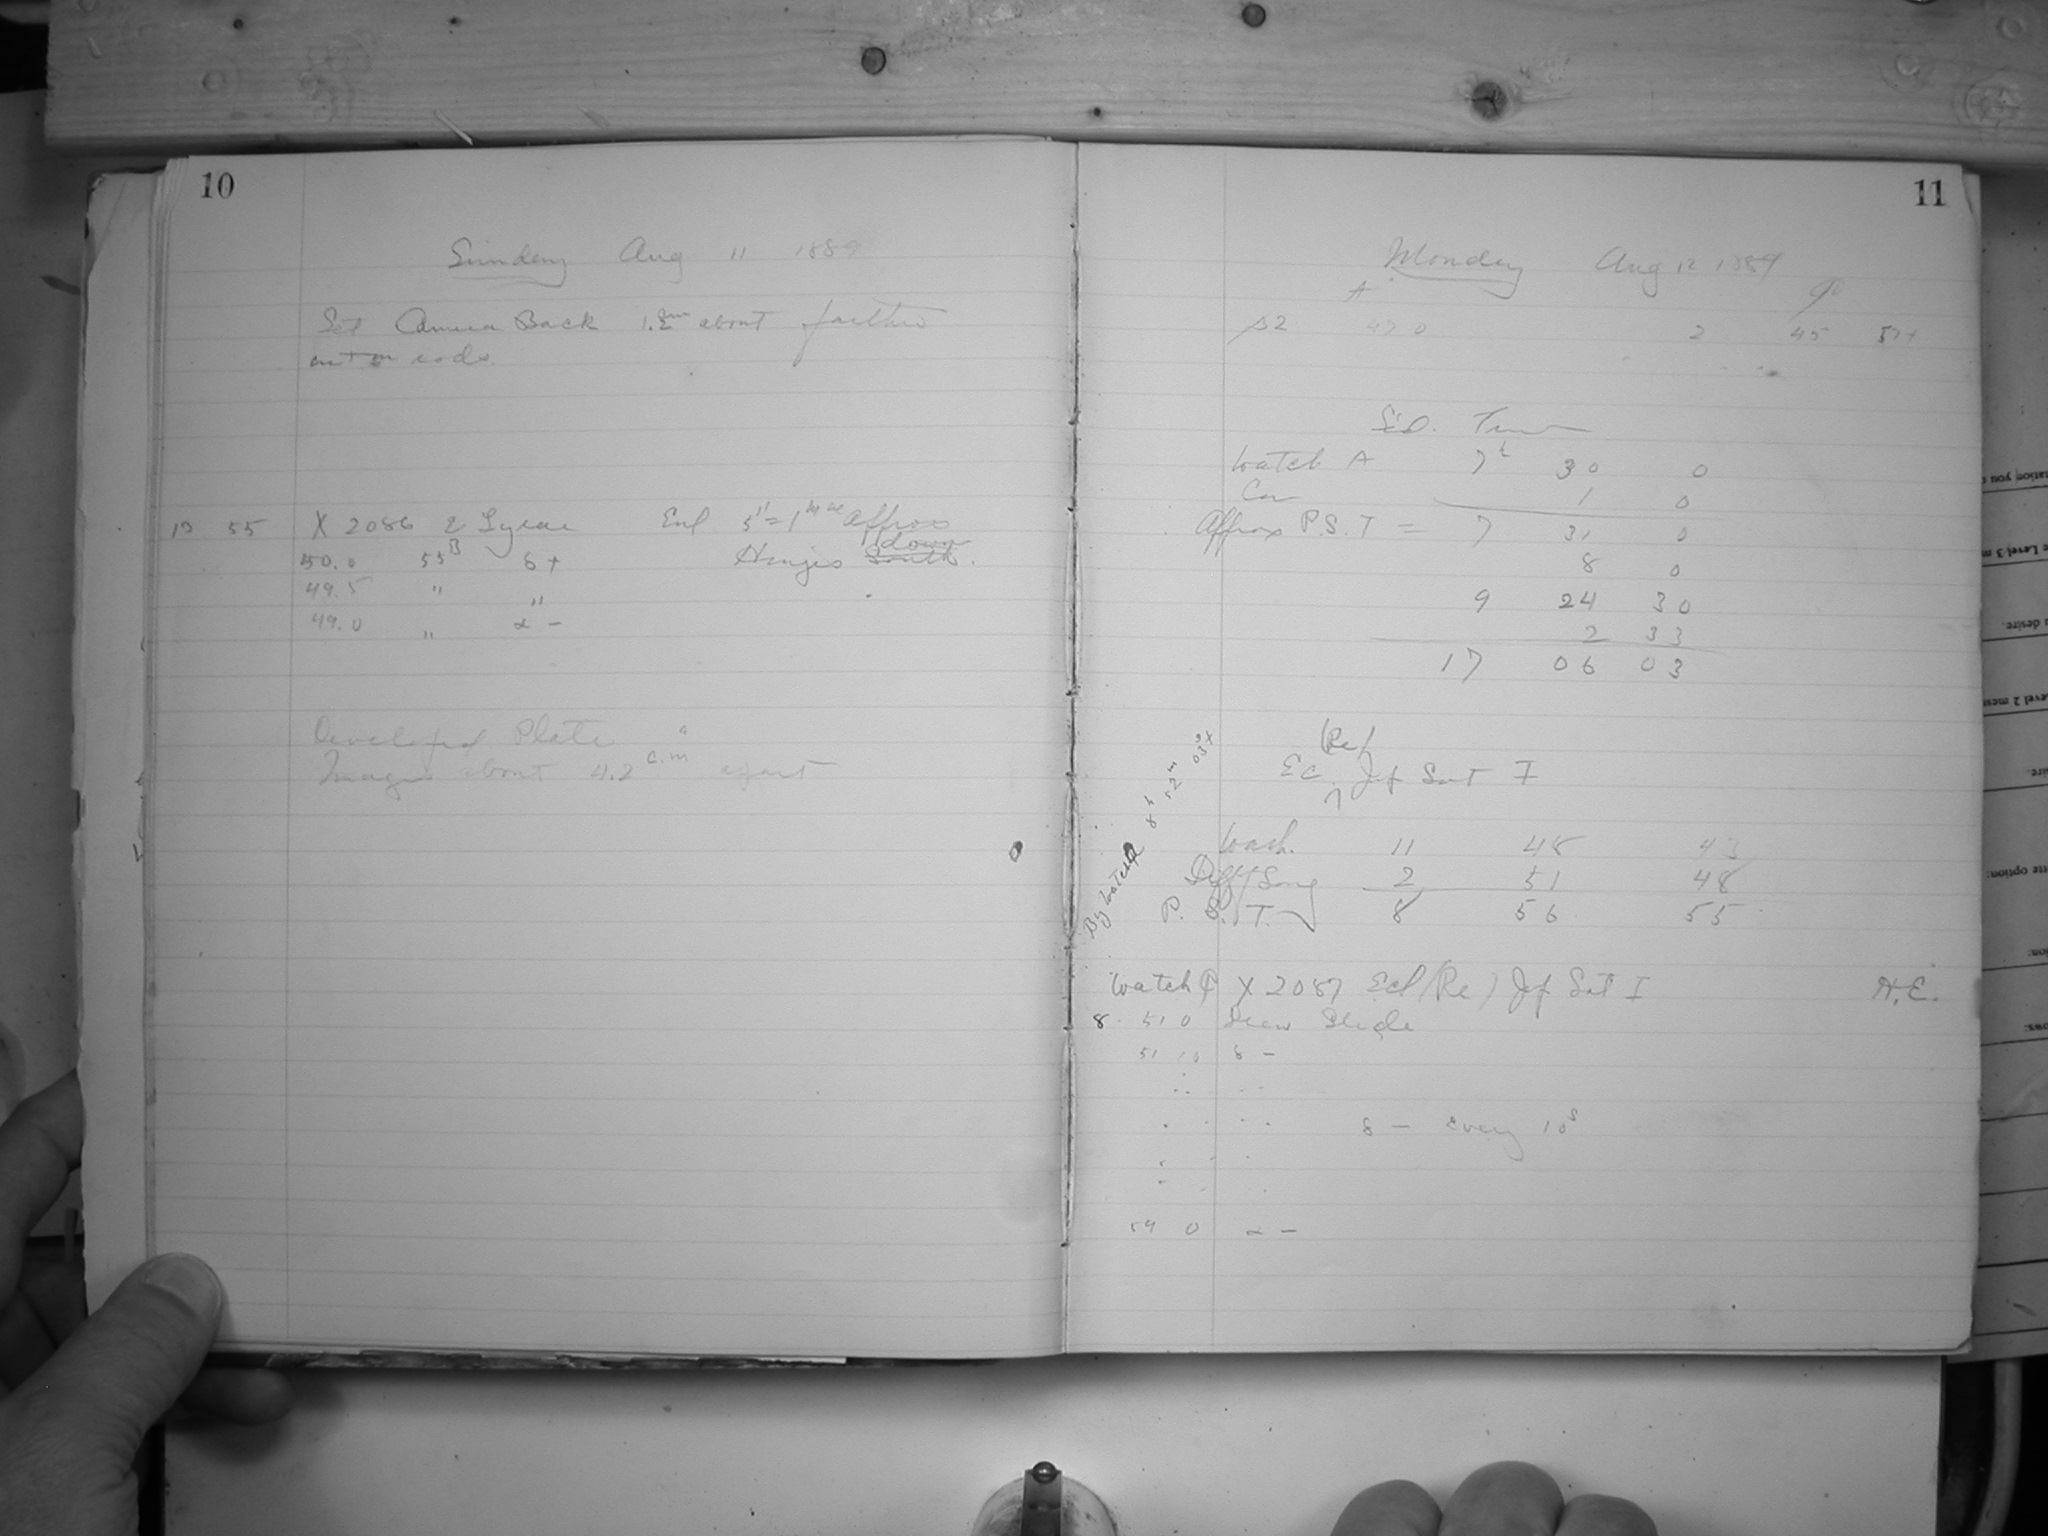 10
Sunday Aug 11 1889
Set Camera Back 1.2 cm about farther
out on rods.
13 55 X 2086 ε Lyrae Enl 5" = 1 mm approx
50.0 55 B δ + Hinges South down.
49.5 " "
49.0 " α -
Developed Plate
Images about 4.2 c.m apart
11
Monday Aug 12 1889
A
52 47 0 2 45 57+
Sid. Time
Watch A 7 h 30 0
Cor 1 0
Approx P.S.T = 7 31 0
8 0
9 24 30
2 33
17 06 03
By Watch 8 h 52 m 03 s
(Re)
Ec Jup Sat I
Wash. 11 48 43
Diff Long 2 51 48
P. S. T. 8 56 55
Watch X 2087 Ecl (Re) Jup Sat I H.E.
8 51 0 Drew Slide
51 10 δ -
δ - every 10 s
59 0 α -